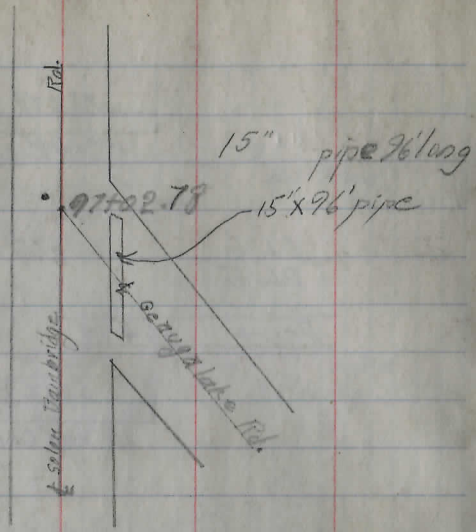 Rd.
15" pipe 96' long
97+02.78
15" x 96' pipe
Geauga lake Rd.
℄ Solon Bainbridge